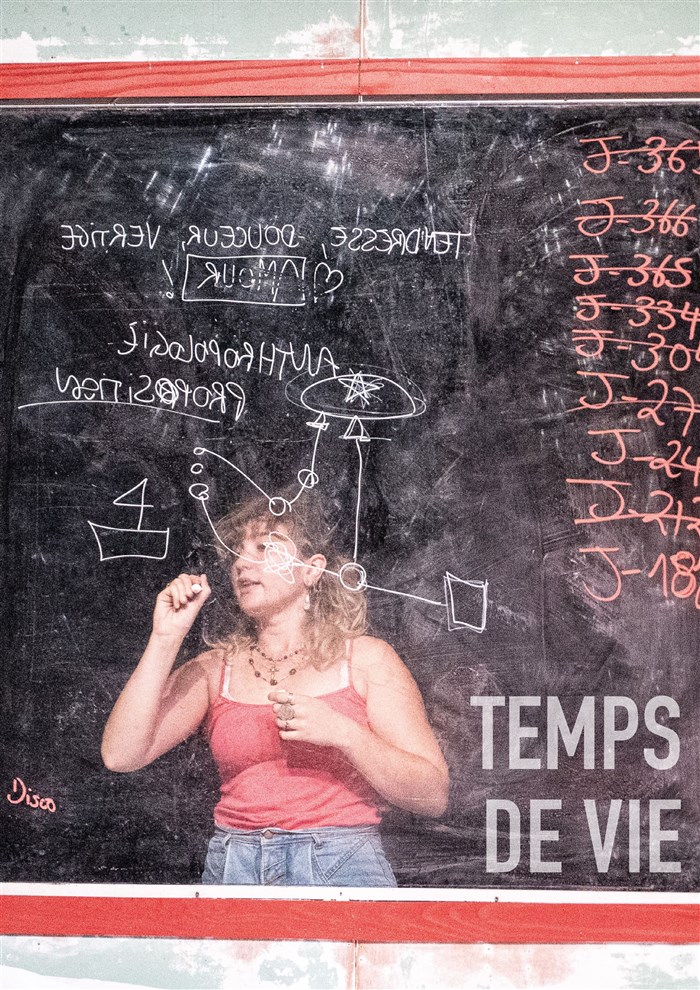 TENDRESSE, DOUCEUR, VERTIGE
! AMOUR !
ANTHROPOLOGIE
PROPOSITION
4
J-36
J-366
J-365
J-334
J-30
J-27
J-24
J-212
J-182
Disco
TEMPS
DE VIE